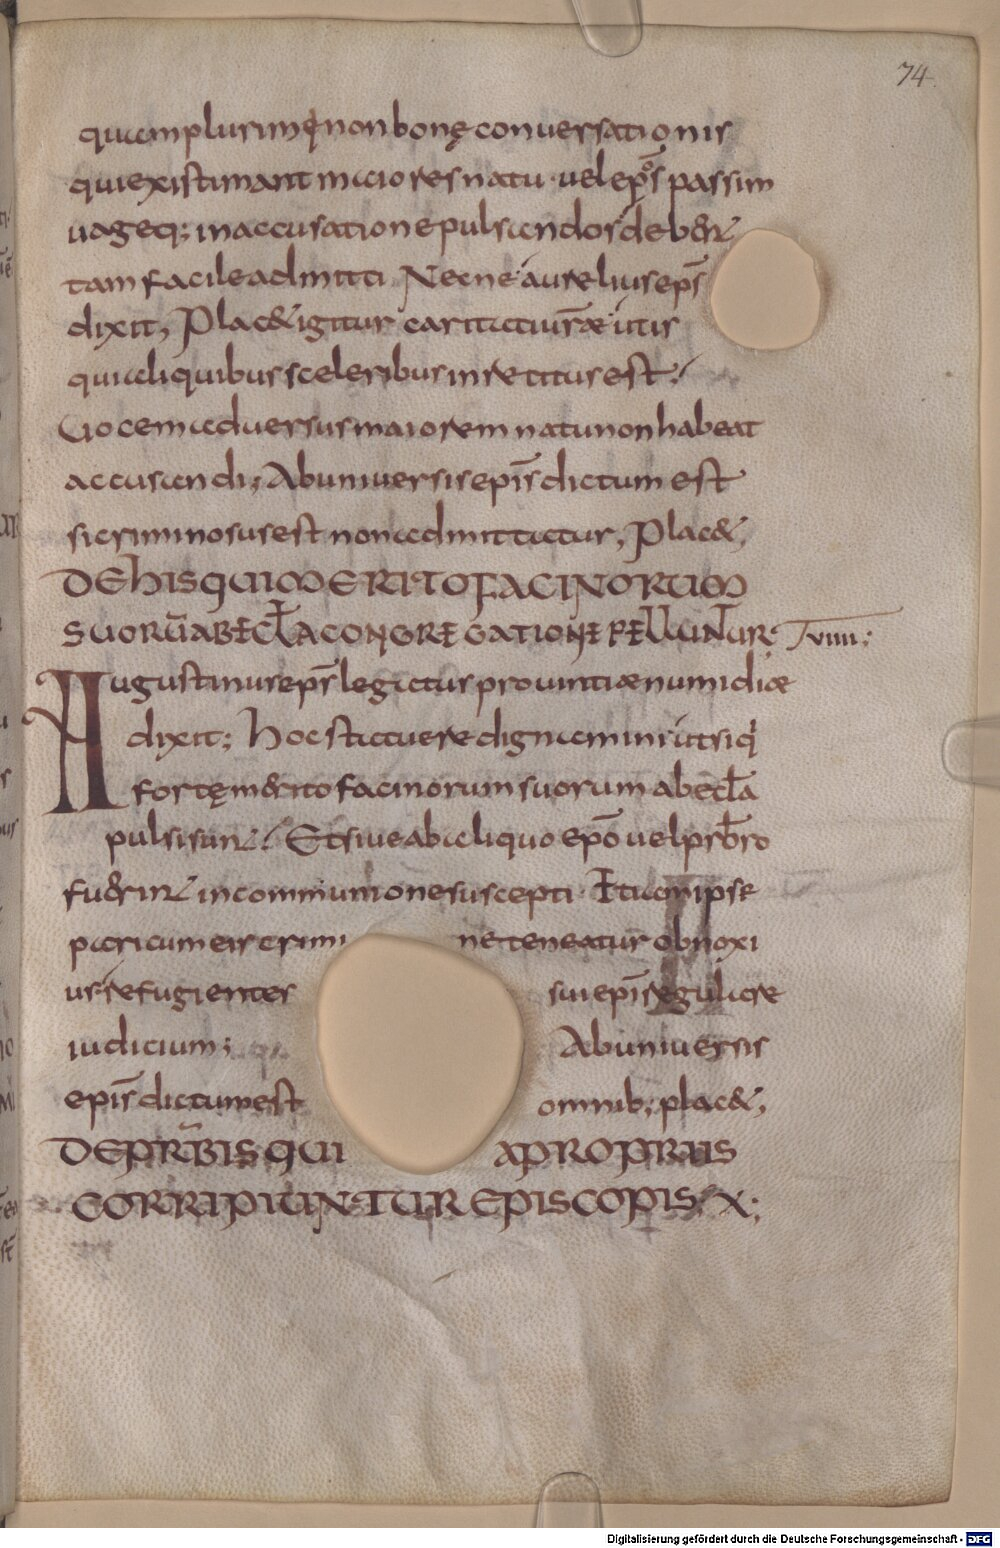 74
quia plurimi non bonę conuersationis
qui existimant maiores natu · uel ep̄os passim
uageq; in accusatione pulsandos debent
tam facile admitti Necne aurelius ep̄s
dixit, Placet igitur caritati uīrae ut is
qui aliquibus sceleribus inretitus est;
Uocem aduersus maiorem natu non habeat
accusandi; Ab uniuersis ep̄is dictum est
si criminosus est non admittatur, Placet,
DE HIS QUI MERITO FACINORUM
SUORŪ AB ECL̄A CONGREGATIONE PELLUNTUR; VIIII;
Augustinus ep̄s legatus prouintiae numidiae
dixit; Hoc statuere dignamini ut si qi
forte merito facinorum suorum ab ecl̄a
pulsi sunt; Et siue ab aliquo ep̄o uel prb̄ro
fuerint in communione suscepti · Etiam ipse
pari cum eis crimi ne teneatur obnoxi
us refugientes sui ep̄i regulare
iudicium; Ab uniuersis
ep̄is dictum est omnib; placet,
DE PRB̄IS QUI A PROPRIIS
CORRIPIUNTUR EPISCOPIS; X;
Digitalisierung gefördert durch die Deutsche Forschungsgemeinschaft - DFG